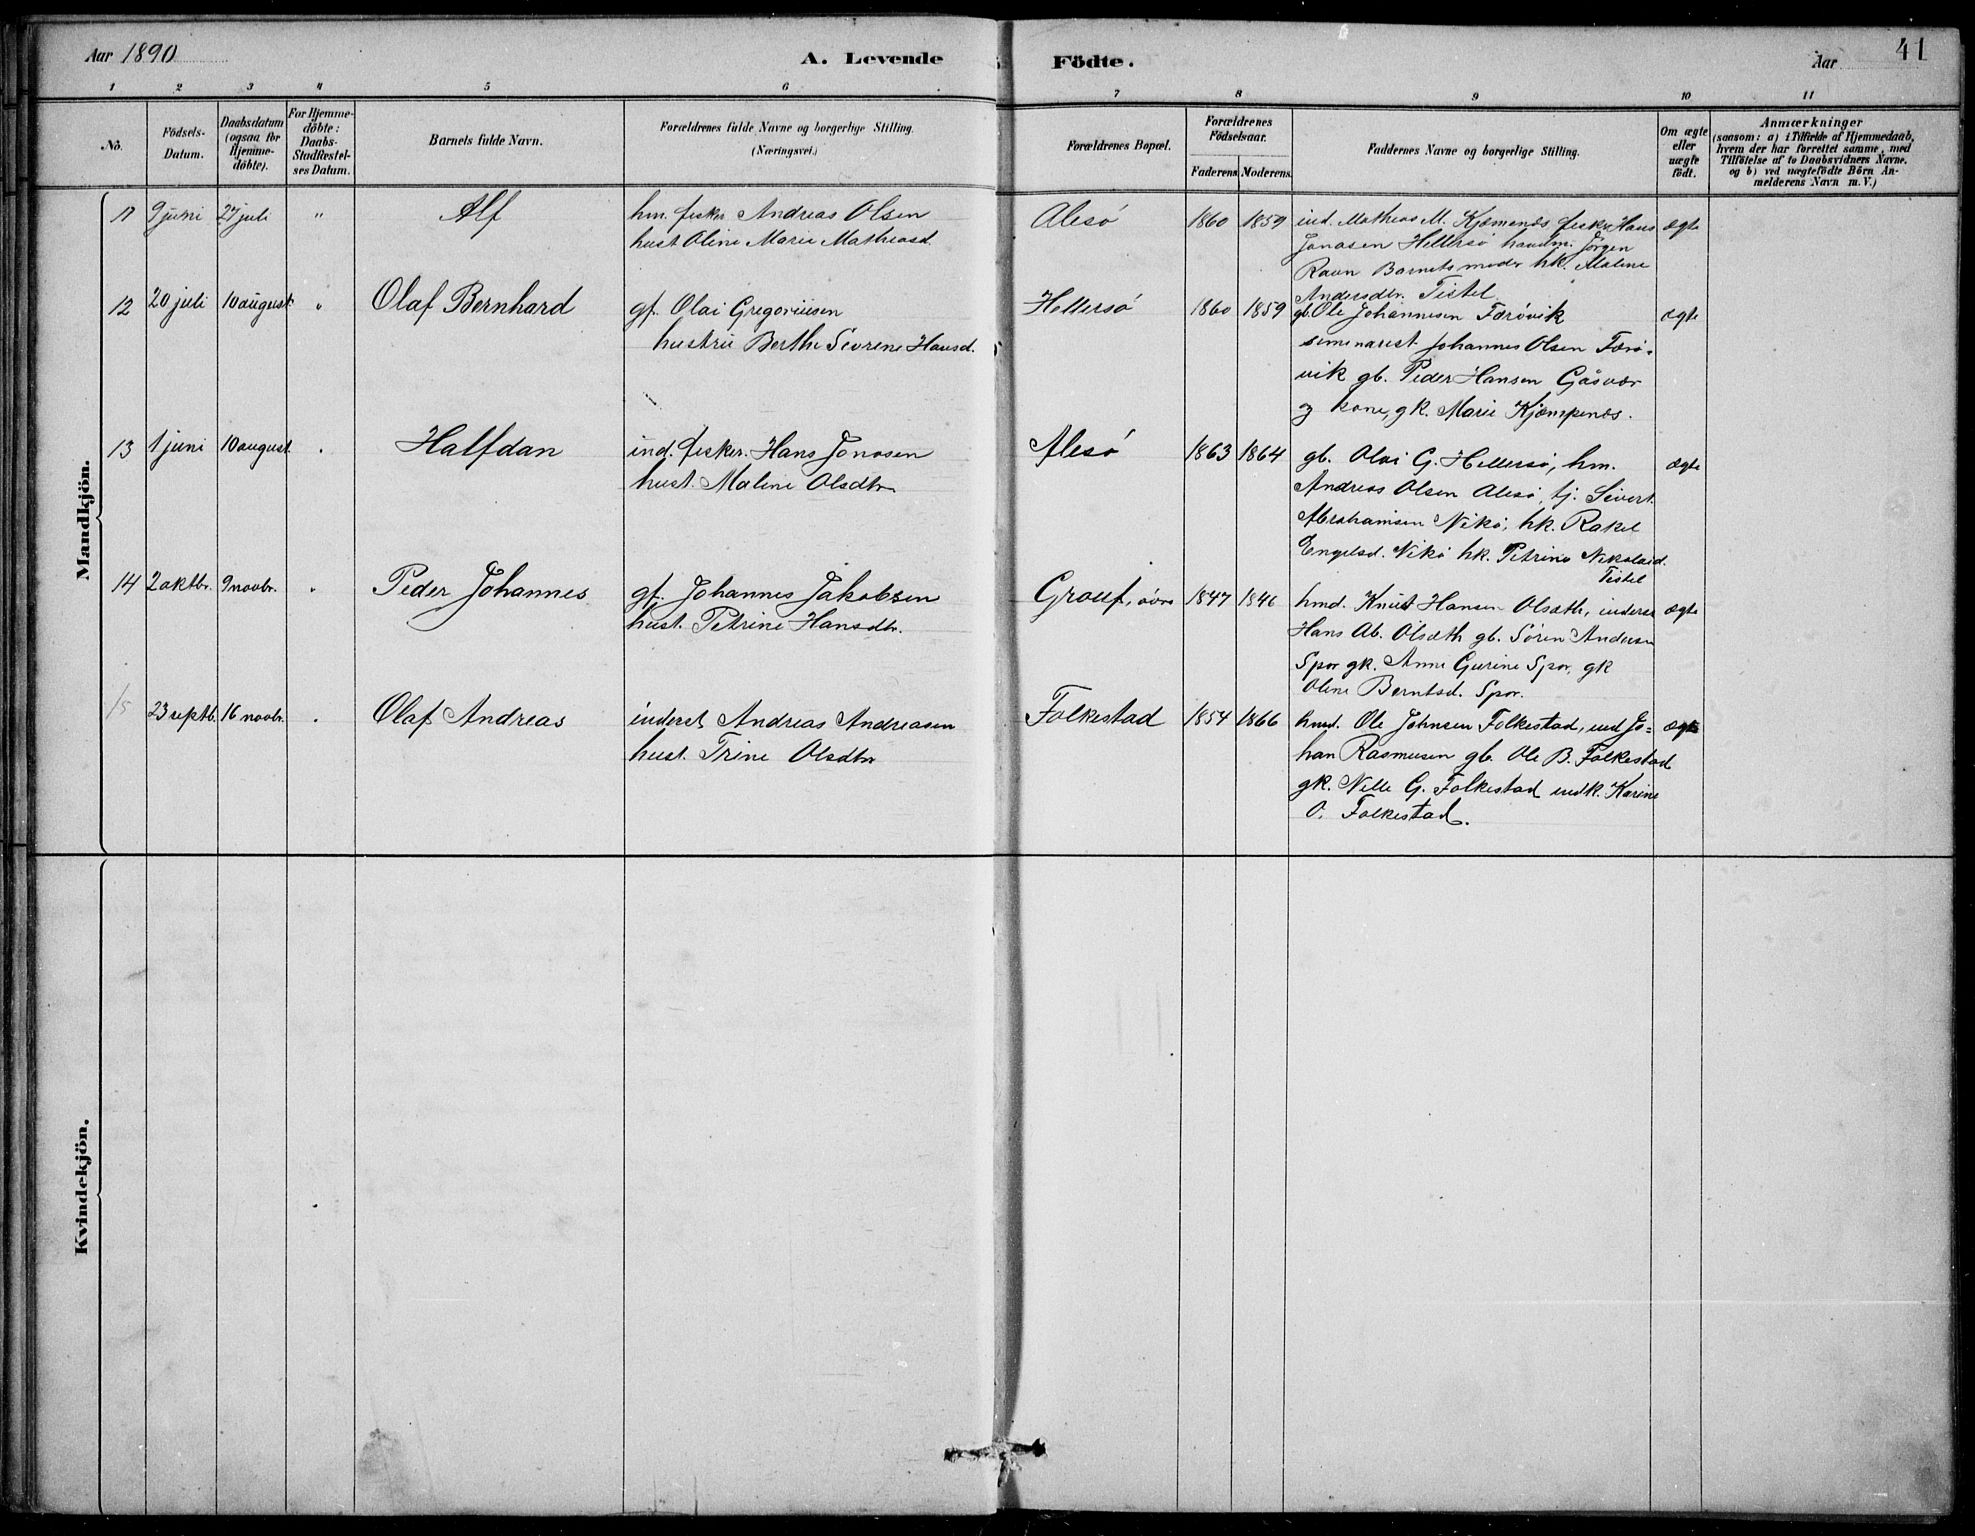 Aar 1890
A. Levende
Födte.
Aar
41
1 2 3 4 5 6 7 8 9 10 11
No.
Födsels-
Datum.
Daabsdatum
(ogsaa for
Hjemme-
döbte).
For Hjemme-
döbte:
Daabs-
Stadfæstel-
ses Datum.
Barnets fulde Navn.
Forældrenes fulde Navne og borgerlige Stilling.
(Næringsvei.)
Forældrenes Bopæl.
Forældrenes
Födselsaar.
Faderens. Moderens.
Faddernes Navne og borgerlige Stilling.
Om ægte
eller
uægte
födt.
Anmærkninger
(saasom: a) i Tilfælde af Hjemmedaab,
hvem der har forrettet samme, med
Tilföielse af to Daabsvidners Navne,
og b) ved uægtefödte Börn An-
melderens Navn m. V.)
Mandkjön.
11 9 juni 27 juli " Alf
hm. fisker Andreas Olsen
hust Oline Marie Mathiasd.
Alesø 1860 1859
ind. Mathias M. Kjæmpenæs fisker Hans
Jonasen Hellersø husdm. Jörgen
Ravn Barnets moder hk. Malene
Andersdtr. Tistel
ægte
12 20 juli 10 august " Olaf Bernhard
gf. Olai Gregoriusen
hustru Berthe Sevrene Hansd.
Hellersø 1860 1859
gb. Ole Johannesen Færøvik
seminarist Johannes Olsen Færø-
vik gb. Peder Hansen Gåsvær
og kone, gk. Marie Kjæmpenæs.
ægte
13 1 juni 10 august " Halfdan
ind. fisker. Hans Jonasen
hust. Maline Olsdtr
Alesø 1863 1864
gb. Olai G. Hellersø, hm.
Andreas Olsen Alesø, tj. Sivert
Abrahamsen Nikø, hk. Rakel
Engelsd. Nikø hk. Petrine Nikolaid.
Tistel
ægte
14 2 oktbr. 9 novbr. " Peder Johannes
gf. Johannes Jakobsen
hust. Petrine Hansdtr.
Grouf, øvre 1847 1846
hmd. Knut Hansen Olsæth, inderst
Hans Ab. Olsæth gb. Sören Andersen
Spor gk. Anne Gurine Spor, gk
Oline Berntsd. Spor.
ægte
15 23 septb. 16 novbr. " Olaf Andreas
inderst Andreas Andreasen
hust. Trine Olsdtr
Folkestad 1854 1866
hmd. Ole Johnsen Folkestad, ind Jo=
han Rasmusen gb. Ole B. Folkestad
gk. Nelle G. Folkestad indk. Karine
O. Folkestad.
ægte
Kvindekjön.